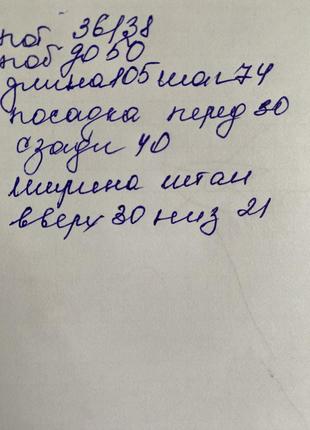 пот 36/38
поб до 50
длина 105 шаг 74
посадка перед 30
сзади 40
ширина штан
вверх 30 низ 21